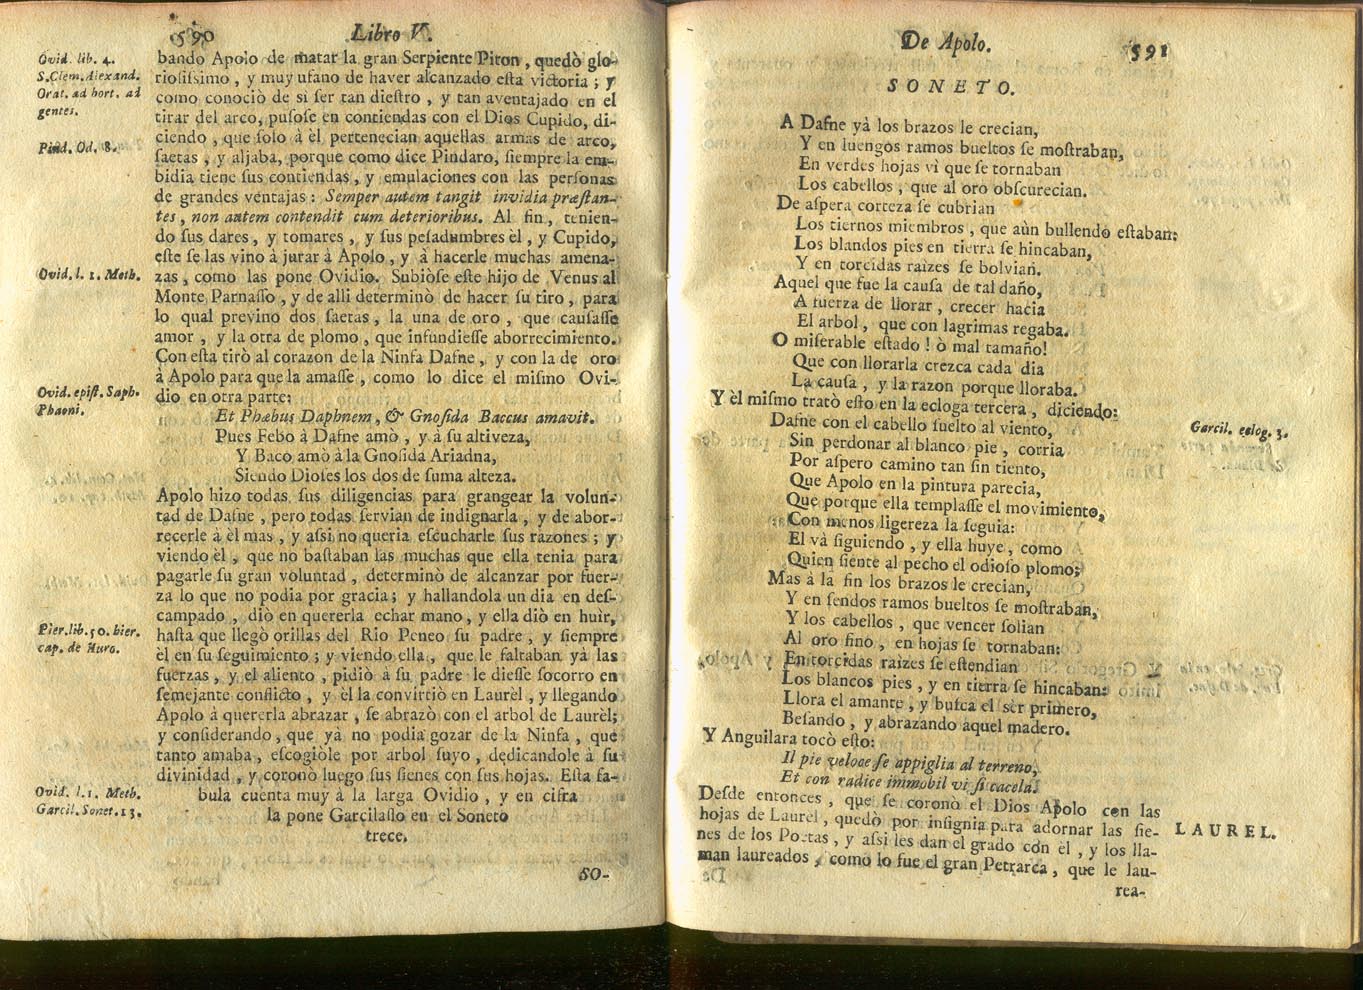 590 Libro V.
Ovid. lib. 4.
S. Clem. Alexand.
Orat. ad hort. ad
gentes.
Pind. Od. 8.
Ovid. l. 1. Meth.
Ovid. epist. Saph.
Phaoni.
Pier. lib. 50. hier.
cap. de Auro.
Ovid. l. 1. Meth.
Garcil. Sonet. 13.
bando Apolo de matar la gran Serpiente Piton, quedò glo-
riosissimo, y muy ufano de haver alcanzado esta victoria; y
como conociò de si ser tan diestro, y tan aventajado en el
tirar del arco, pusose en contiendas con el Dios Cupido, di-
ciendo, que solo à èl pertenecian aquellas armas de arco,
saetas, y aljaba, porque como dice Pindaro, siempre la em-
bidia tiene sus contiendas, y emulaciones con las personas
de grandes ventajas: Semper autem tangit invidia præstan-
tes, non autem contendit cum deterioribus. Al fin, tenien-
do sus dares, y tomares, y sus pesadumbres èl, y Cupido,
este se las vino à jurar à Apolo, y à hacerle muchas amena-
zas, como las pone Ovidio. Subiòse este hijo de Venus al
Monte Parnasso, y de alli determinò de hacer su tiro, para
lo qual previno dos saetas, la una de oro, que causasse
amor, y la otra de plomo, que infundiesse aborrecimiento.
Con esta tirò al corazon de la Ninfa Dafne, y con la de oro
à Apolo para que la amasse, como lo dice el mismo Ovi-
dio en otra parte:
Et Phæbus Daphnem, & Gnosida Baccus amavit.
Pues Febo à Dafne amò, y à su altiveza,
Y Baco amò à la Gnosida Ariadna,
Siendo Dioses los dos de suma alteza.
Apolo hizo todas sus diligencias para grangear la volun-
tad de Dafne, pero todas servian de indignarla, y de abor-
recerle à èl mas, y assi no queria escucharle sus razones; y
viendo èl, que no bastaban las muchas que ella tenia para
pagarle su gran voluntad, determinò de alcanzar por fuer-
za lo que no podia por gracia; y hallandola un dia en des-
campado, diò en quererla echar mano, y ella diò en huìr,
hasta que llegò orillas del Rio Peneo su padre, y siempre
èl en su seguimiento; y viendo ella, que le faltaban yà las
fuerzas, y el aliento, pidiò à su padre le diesse socorro en
semejante conflicto, y èl la convirtiò en Laurèl, y llegando
Apolo à quererla abrazar, se abrazò con el arbol de Laurèl;
y considerando, que yà no podia gozar de la Ninfa, que
tanto amaba, escogiòle por arbol suyo, dedicandole à su
divinidad, y coronò luego sus sienes con sus hojas. Esta fa-
bula cuenta muy à la larga Ovidio, y en cifra
la pone Garcilasso en el Soneto
trece.
SO-
De Apolo. 591
SONETO.
A Dafne yà los brazos le crecian,
Y en luengos ramos bueltos se mostraban,
En verdes hojas vi que se tornaban
Los cabellos, que al oro obscurecian.
De aspera corteza se cubrian
Los tiernos miembros, que aùn bullendo estaban:
Los blandos pies en tierra se hincaban,
Y en torcidas raìzes se bolvian.
Aquel que fue la causa de tal daño,
A fuerza de llorar, crecer hacia
El arbol, que con lagrimas regaba.
O miserable estado! ò mal tamaño!
Que con llorarla crezca cada dia
La causa, y la razon porque lloraba.
Y èl mismo tratò esto en la ecloga tercera, diciendo:
Dafne con el cabello suelto al viento,
Sin perdonar al blanco pie, corria
Por aspero camino tan sin tiento,
Que Apolo en la pintura parecia,
Que porque ella templasse el movimiento,
Con menos ligereza la seguia:
El và siguiendo, y ella huye, como
Quien siente al pecho el odioso plomo;
Mas à la fin los brazos le crecian,
Y en sendos ramos bueltos se mostraban,
Y los cabellos, que vencer solian
Al oro fino, en hojas se tornaban:
En torcidas raìzes se estendian
Los blancos pies, y en tierra se hincaban:
Llora el amante, y busca el ser primero,
Besando, y abrazando aquel madero.
Y Anguilara tocò esto:
Il pie veloce se appiglia al terreno,
Et con radice immobil vi si cacela.
Desde entonces, que se coronò el Dios Apolo con las
hojas de Laurel, quedò por insignia para adornar las sie-
nes de los Poetas, y assi les dan el grado con èl, y los lla-
man laureados, como lo fue el gran Petrarca, que le lau-
rea-
Garcil. eclog. 3.
LAUREL.